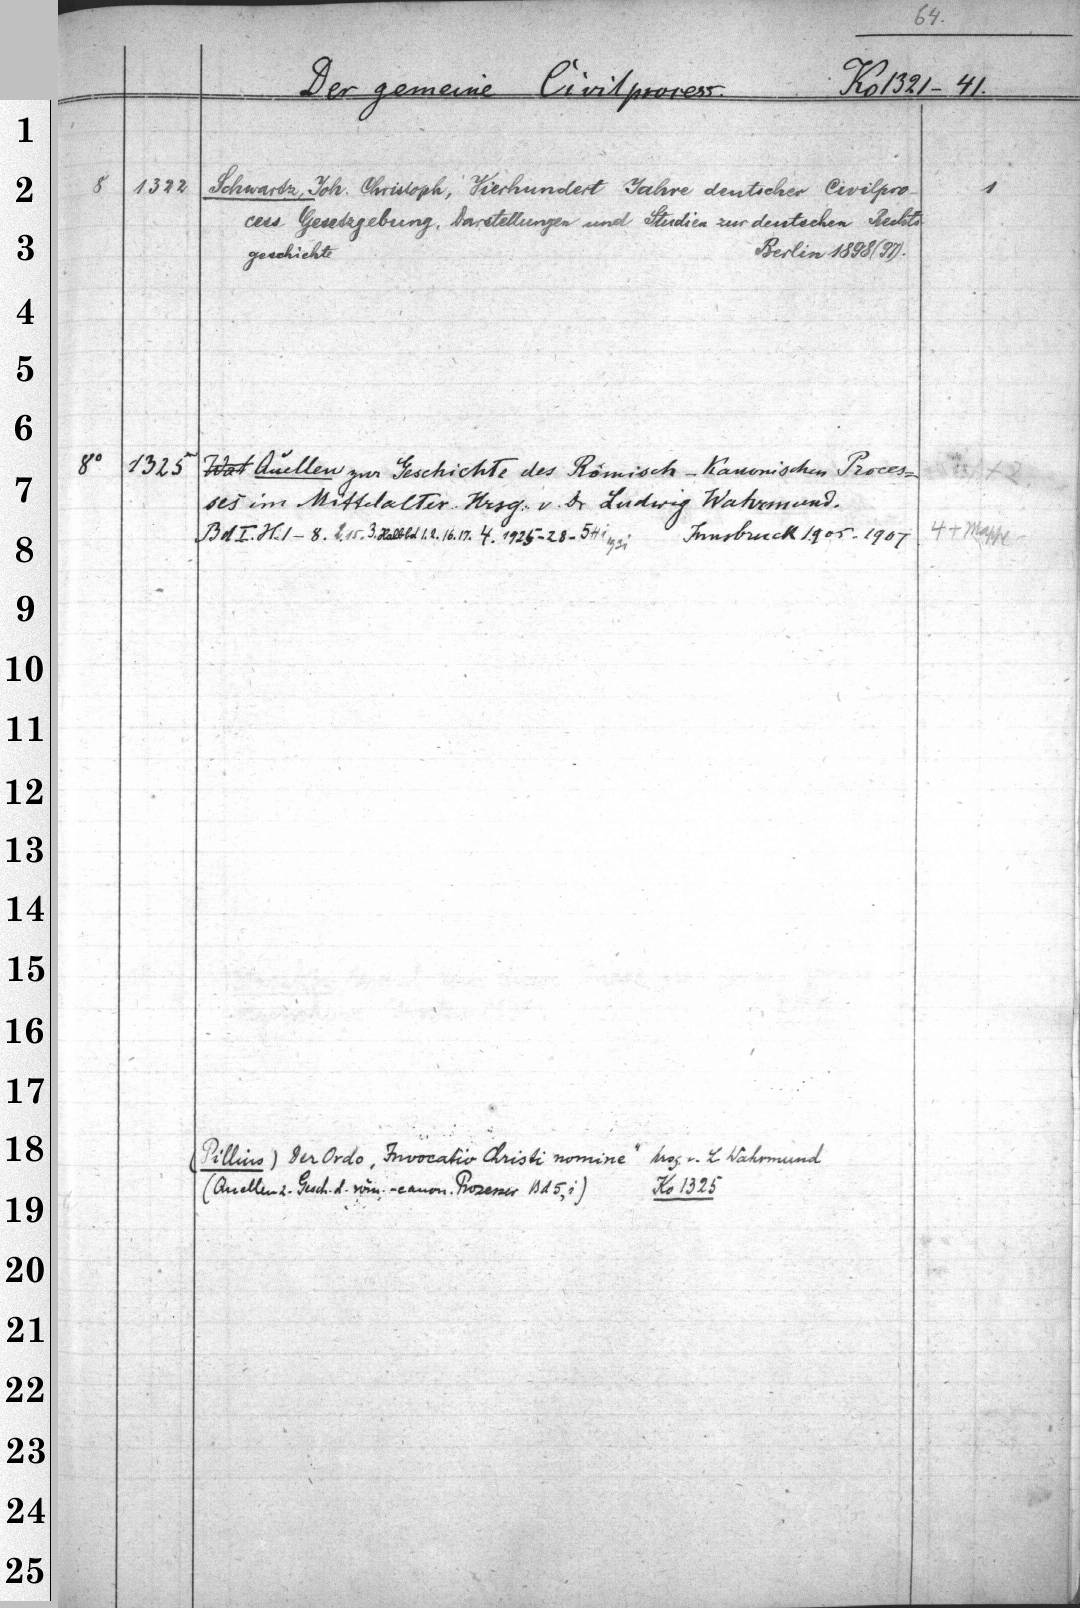 64.
Der gemeine Civilprocess. Ko 1321-41.
1
2
3
4
5
6
7
8
9
10
11
12
13
14
15
16
17
18
19
20
21
22
23
24
25
8 1322 Schwartz, Joh. Christoph, Vierhundert Jahre deutscher Civilpro- 1
cess Gesetzgebung. Darstellungen und Studien zur deutschen Rechts
geschichte Berlin 1898(97).
8° 1325 Wat Quellen zur Geschichte des Römisch-Kanonischen Proces=
ses im Mittelalter. Hrsg. v. Dr Ludwig Wahrmund.
Bd I. H. 1-8. 2. 15. 3. Halbbd 1. 2. 16. 17. 4. 1925-28- 5 H i 1931 Innsbruck 1905-1907 4 + Mappe
(Pillius) Der Ordo „Invocatio Christi nomine" hrsg. v. L Wahrmund
(Quellen z. Gesch. d. röm.-canon. Prozesses Bd 5, i) Ko 1325